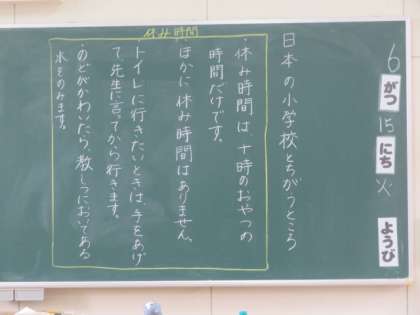 6がつ15にち火ようび
日本の小学校とちがうところ
休み時間
・休み時間は、十時のおやつの
時間だけです。
・ほかに休み時間はありません。
・トイレに行きたいときは、手をあげ
て、先生に言ってから行きます。
・のどがかわいたら、教しつにおいてある
水をのみます。